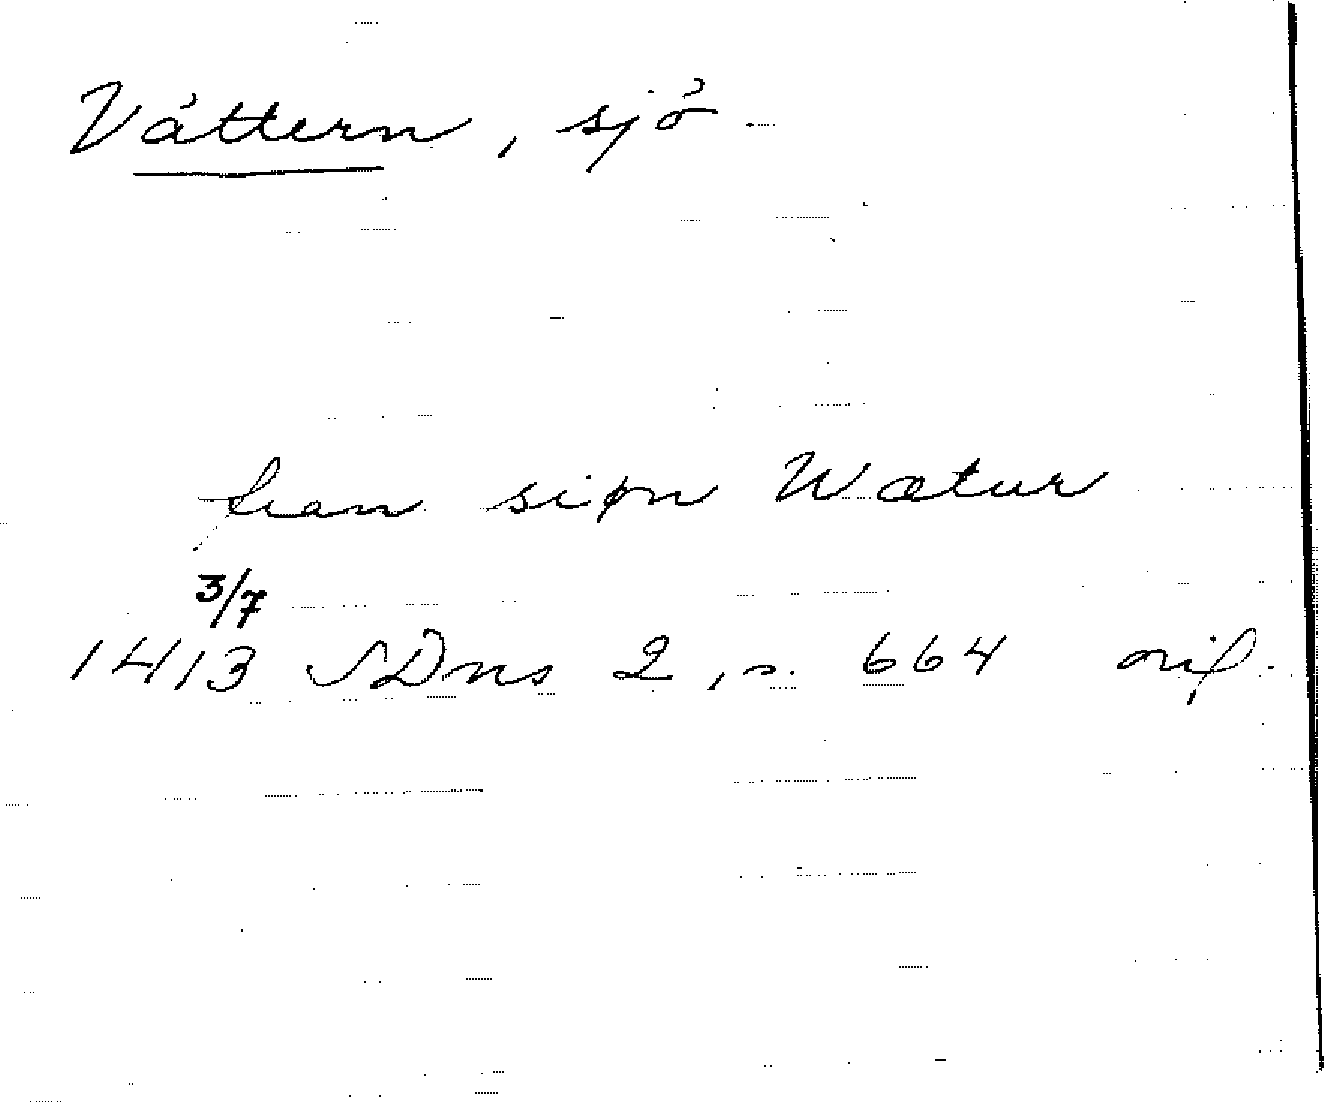 Vättern, sjö
fran siøn Wætur
3/7
1413 SDns 2, s. 664 orig.